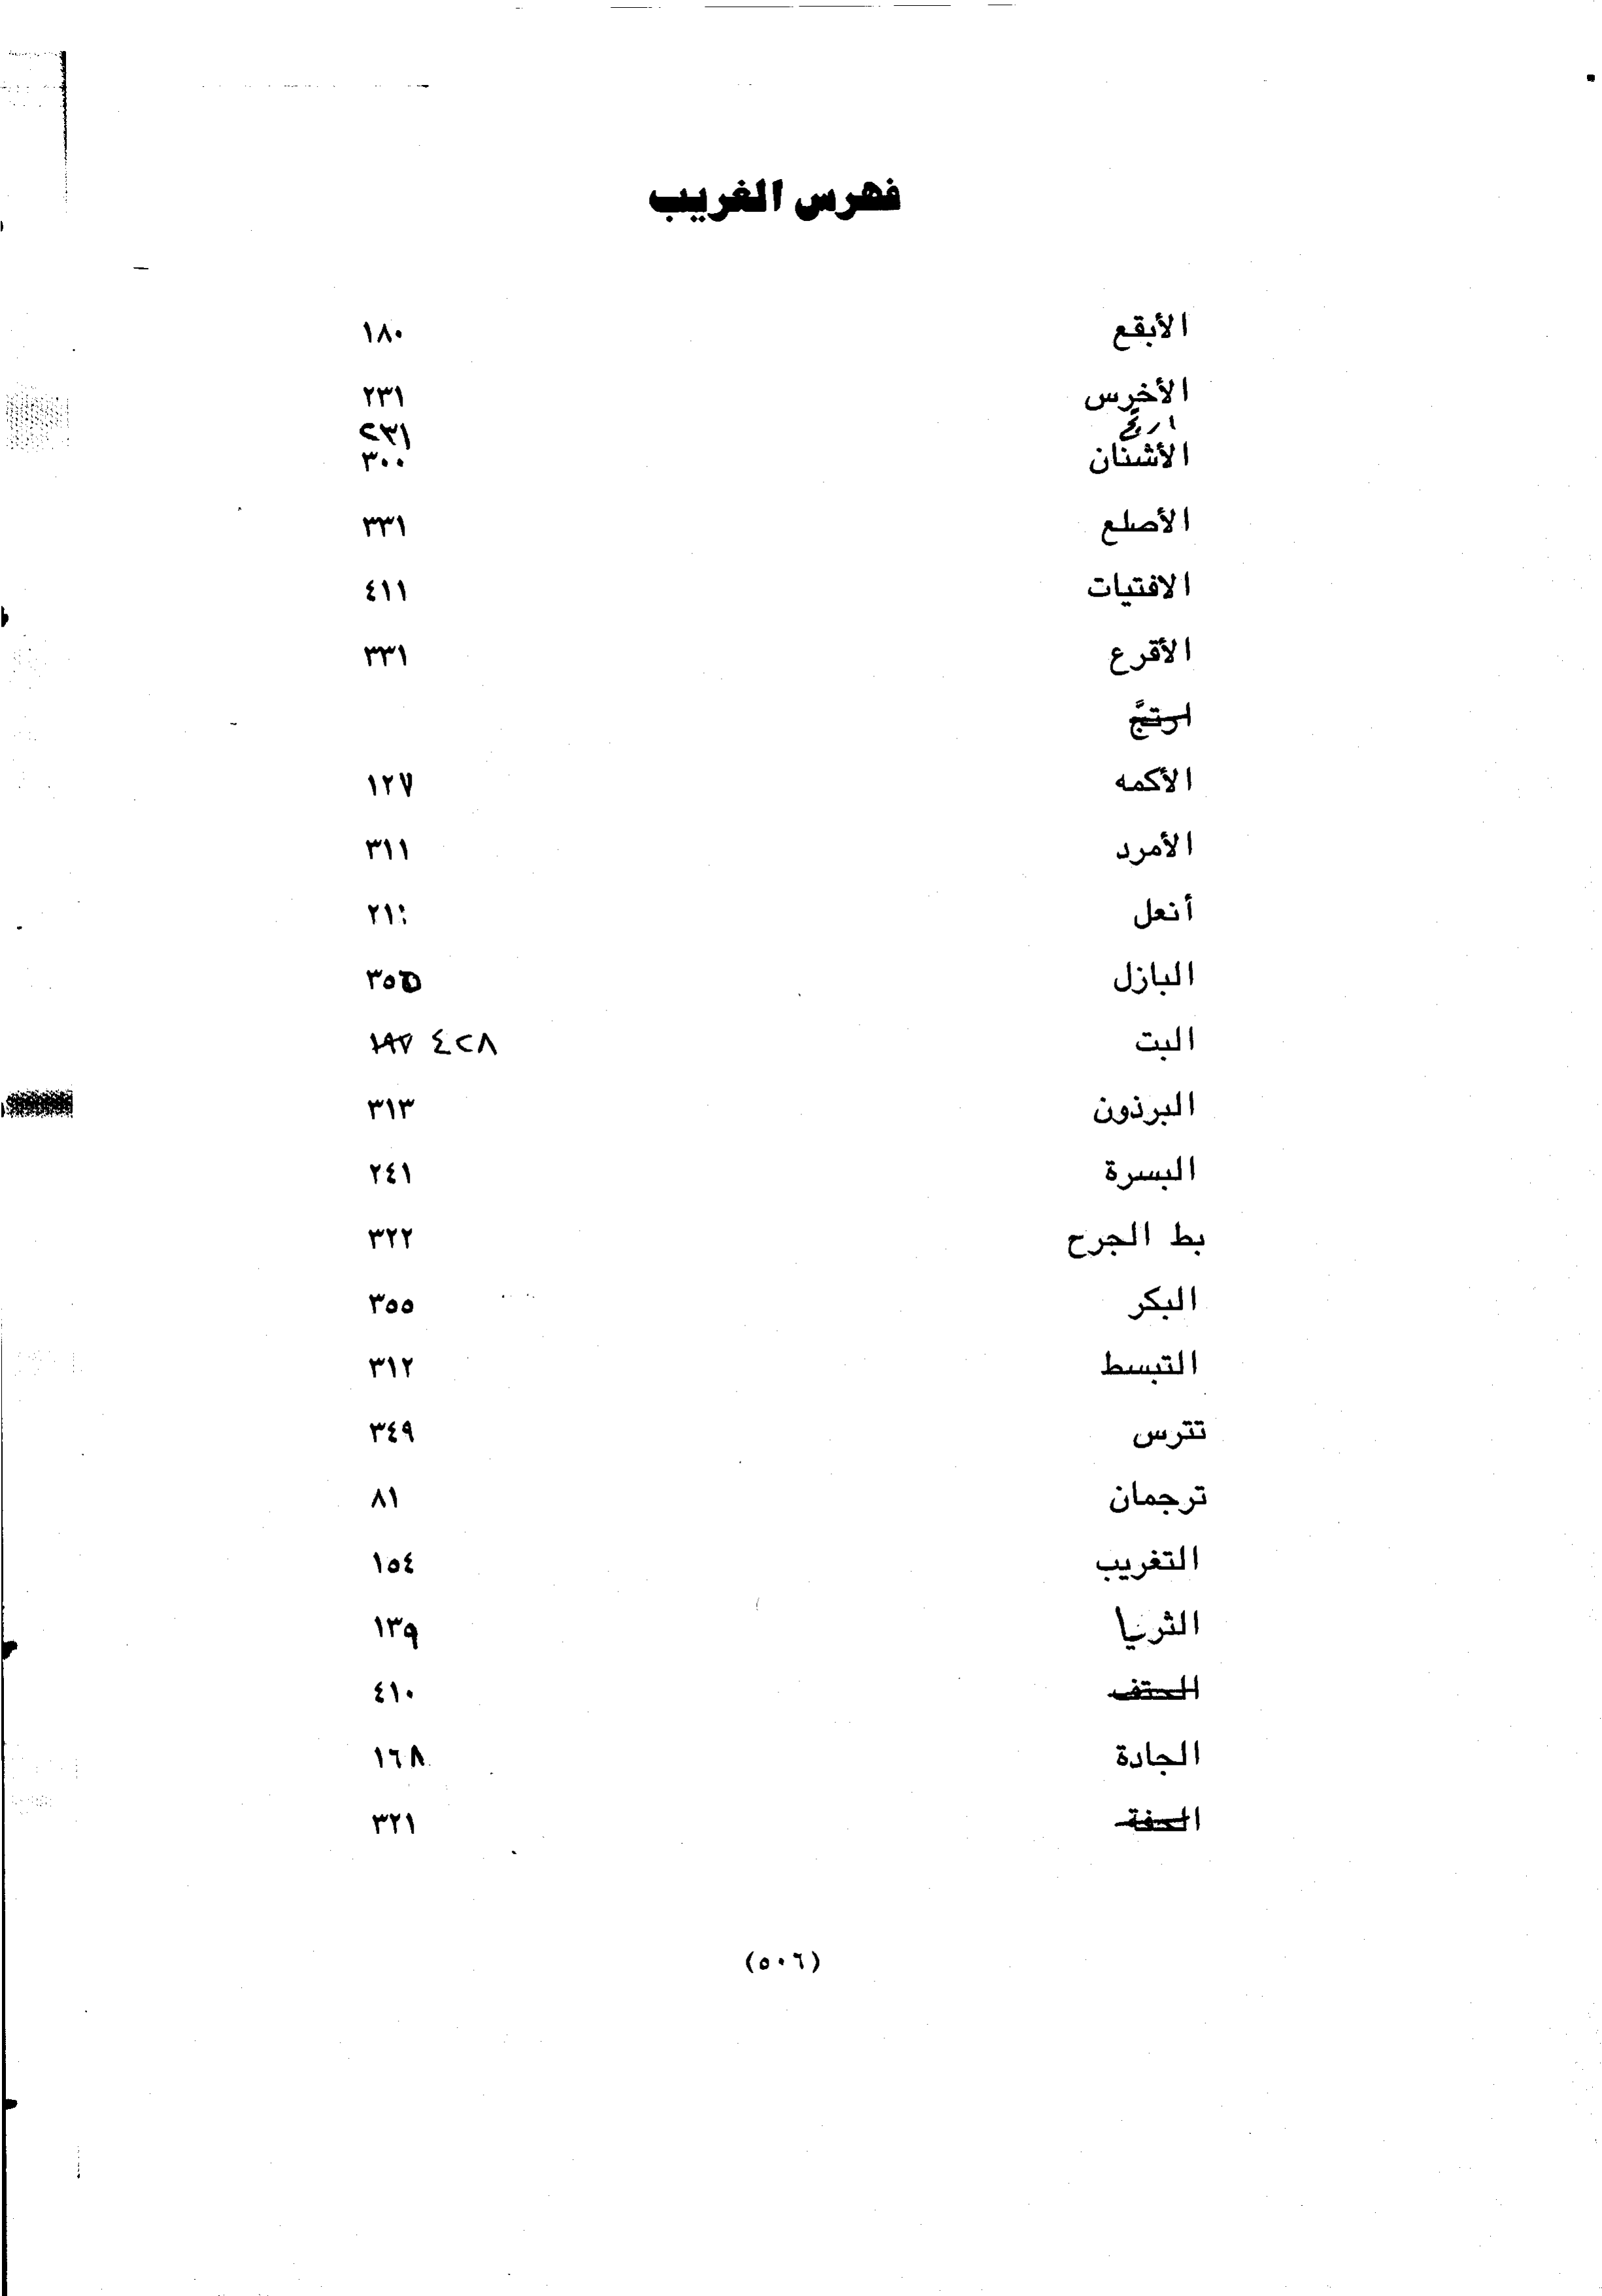 فهرس الغريب
الأبقع ١٨٠
الأخرس ٢٣١
ارتجَّ ٢٣١
الأشنان ٣٠٠
الأصلع ٣٣١
الافتيات ٤١١
الأقرع ٣٣١
ارتجَّ
الأكمه ١٢٧
الأمرد ٣١١
أنعل
البازل ٣٥٥
البت ١٩٢ ٤٢٨
البرذون ٣١٣
البسرة ٢٤١
بط الجرح ٣٢٢
البكر ٣٥٥
التبسط ٣١٢
تترس ٣٤٩
ترجمان ٨١
التغريب ١٥٤
الثريا ١٣٩
الحتف ٤١٠
الجادة ١٦٨
٣٢١
(٥٠٦)